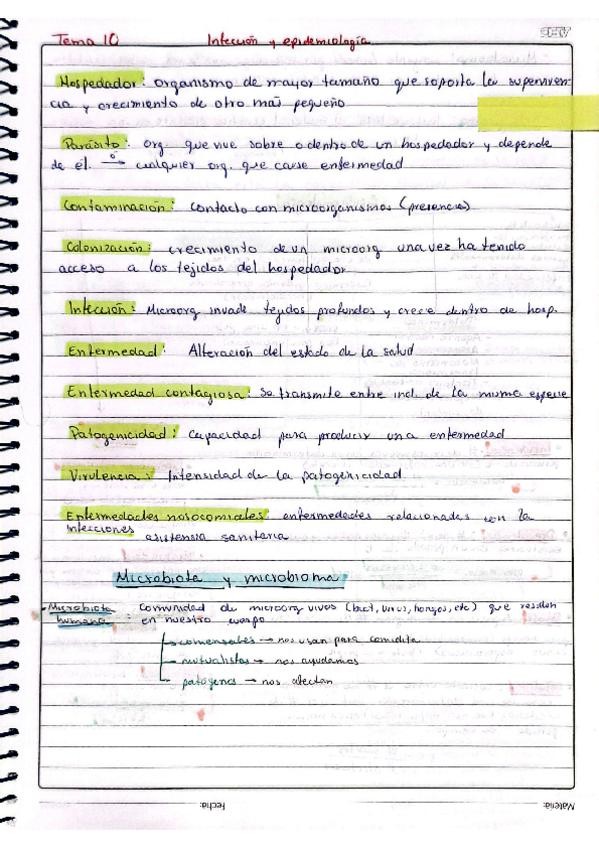 Tema 10 Infección y epidemiología
Hospedador: organismo de mayor tamaño que soporta la superviven
cia y crecimiento de otro más pequeño
Parásito: org. que vive sobre o dentro de un hospedador y depende
de él. → ó cualquier org. que cause enfermedad
Contaminación: contacto con microorganismos (presencia)
Colonización: crecimiento de un microorg una vez ha tenido
acceso a los tejidos del hospedador
Infección: Microorg invade tejidos profundos y crece dentro de hosp.
Enfermedad: Alteración del estado de la salud
Enfermedad contagiosa: Se transmite entre ind. de la misma especie
Patogenicidad: Capacidad para producir una enfermedad
Virulencia: Intensidad de la patogenicidad
Enfermedades nosocomiales: enfermedades relacionadas con la
infecciones asistencia sanitaria
Microbiota y microbioma
- Microbiota humana: comunidad de microorg vivos (bact, virus, hongos, etc) que residen
en nuestro cuerpo
comensales → nos usan para comidita
mutualistas → nos ayudamos
patógenos → nos afectan
Fecha: Materia: